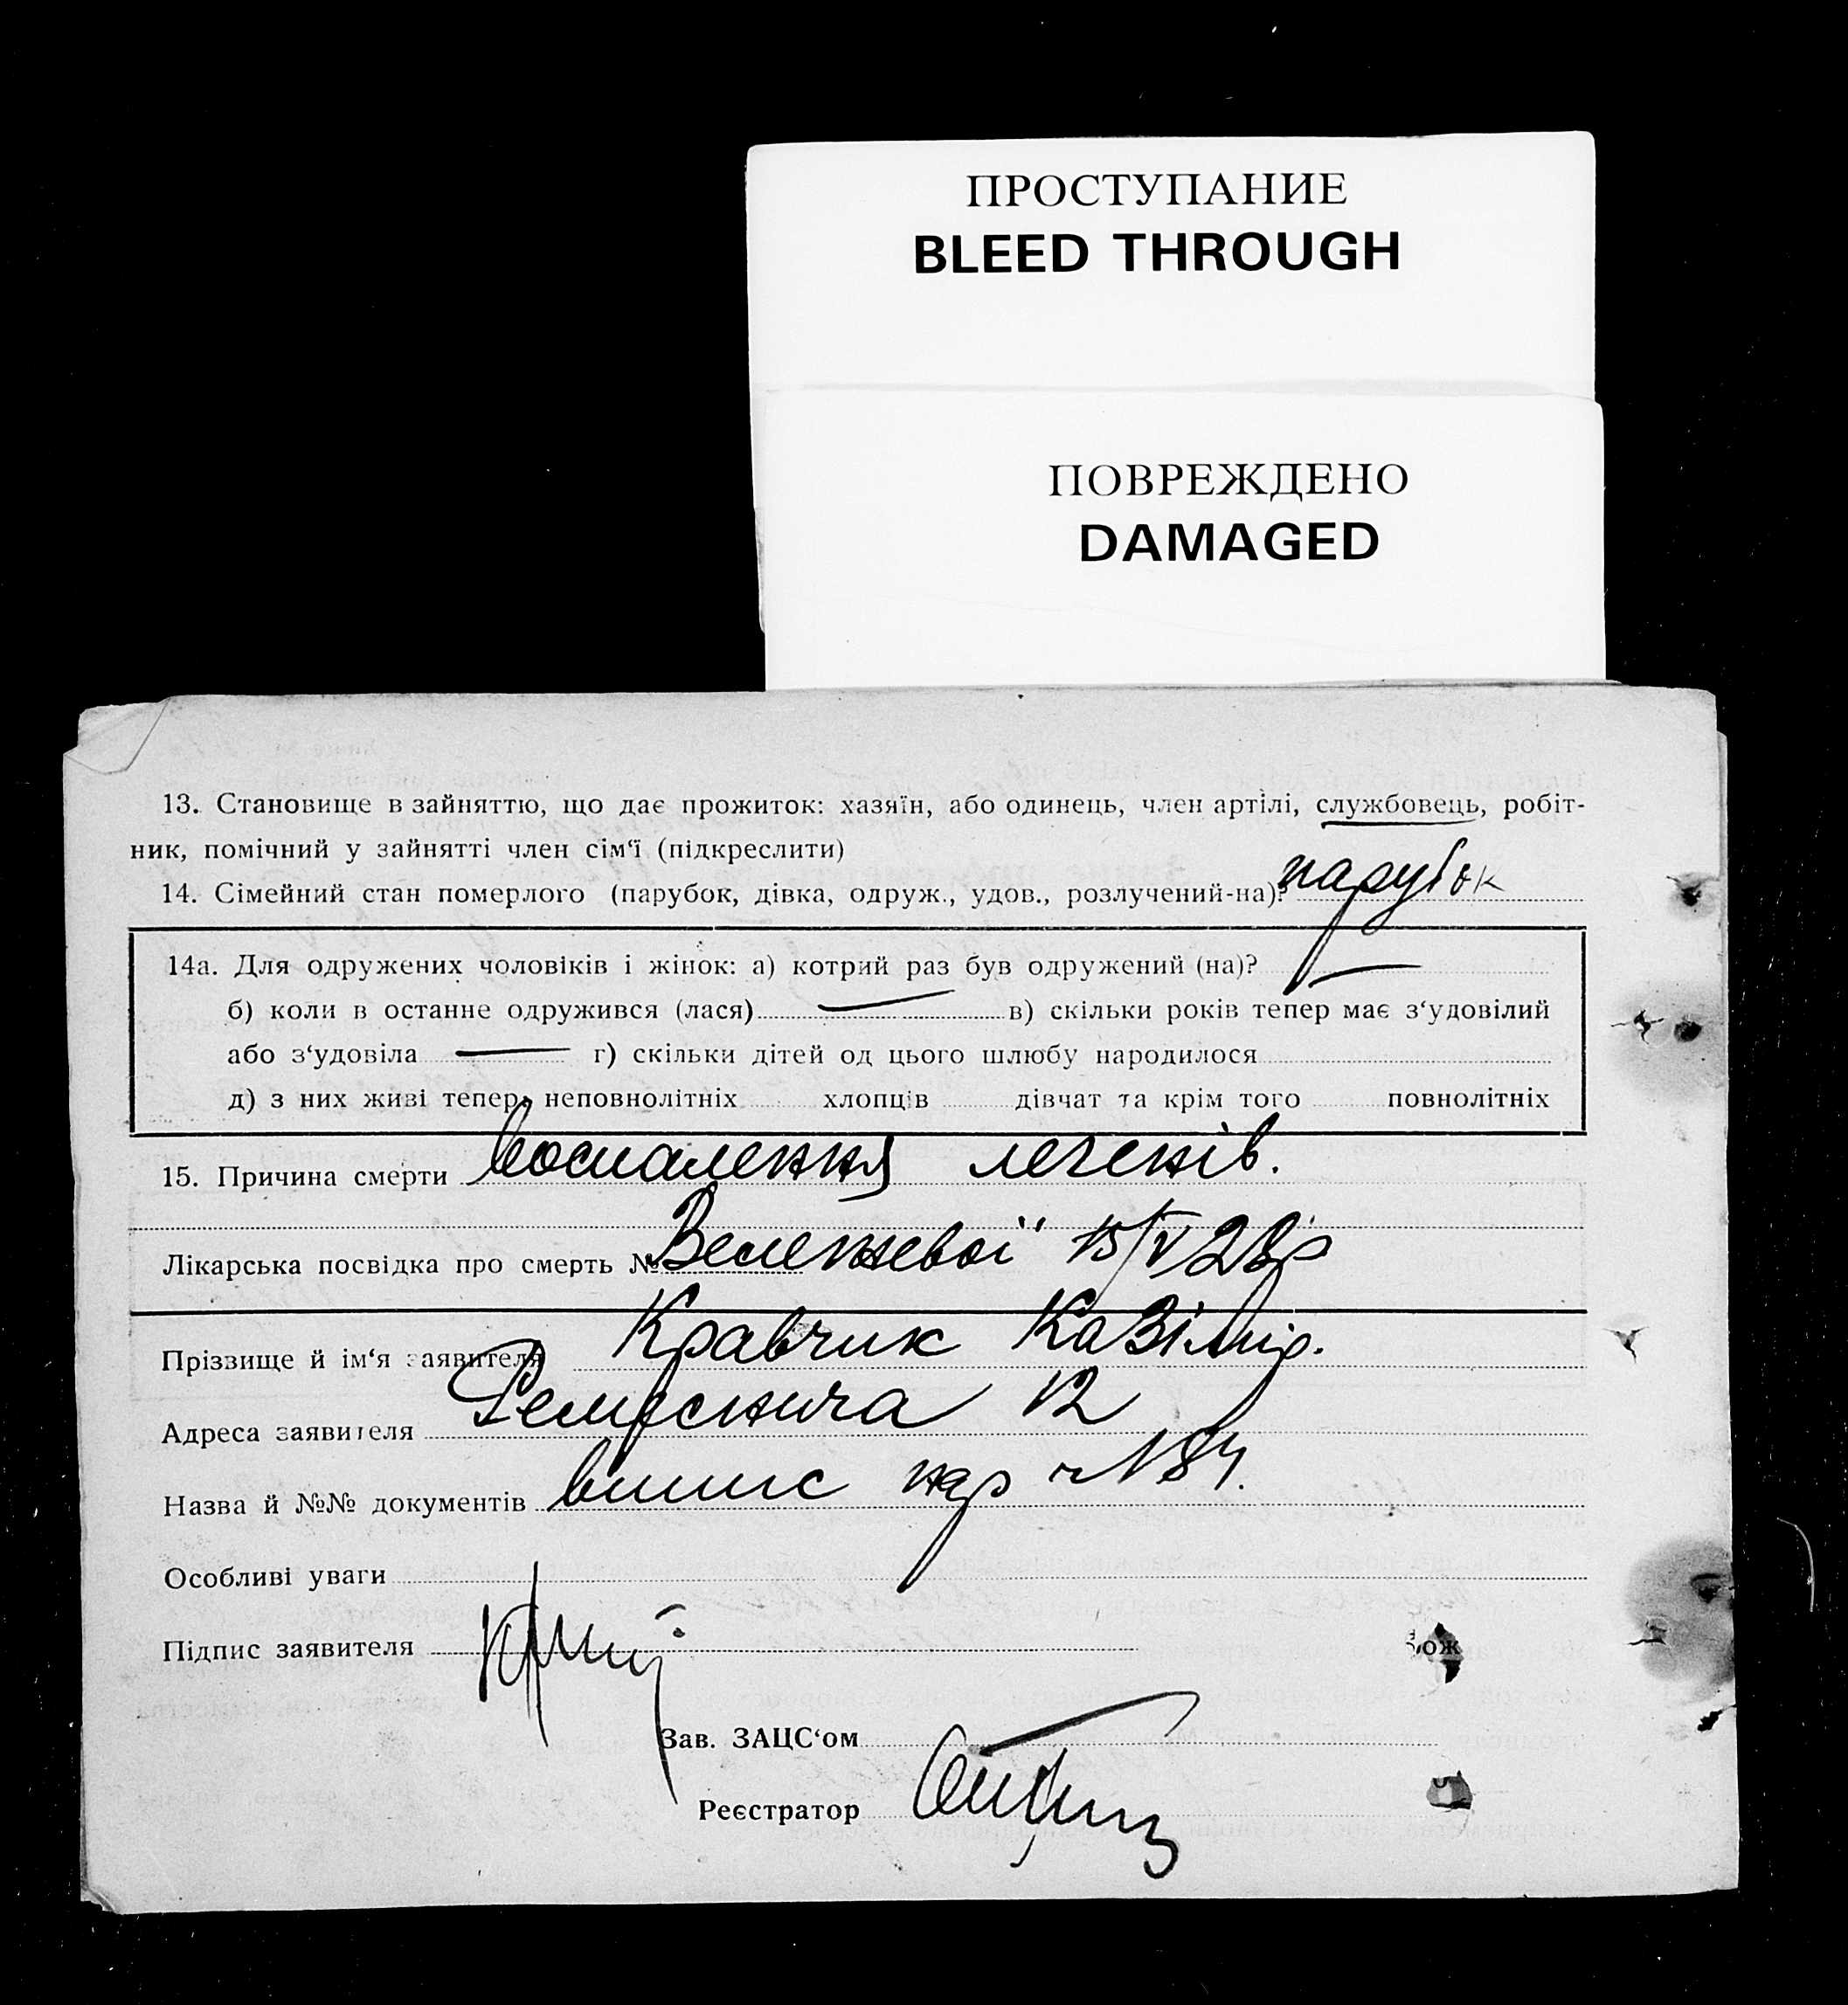 ПРОСТУПАНИЕ
BLEED THROUGH
ПОВРЕЖДЕНО
DAMAGED
13. Становище в зайняттю, що дає прожиток: хазяїн, або одинець, член артілі, службовець, робіт-
ник, помічний у зайнятті член сім'ї (підкреслити)
14. Сімейний стан померлого (парубок, дівка, одруж., удов., розлучений-на)? парубок
14а. Для одружених чоловіків і жінок: а) котрий раз був одружений (на)? —
б) коли в останне одружився (лася) — в) скільки років тепер має з'удовілий
або з'удовіла — г) скільки дітей од цього шлюбу народилося
д) з них живі тепер, неповнолітніх хлопців дівчат та крім того повнолітніх
15. Причина смерти воспалення легенів.
Лікарська посвідка про смерть № 15/V 28р
Прізвище й ім'я заявителя Кравчик Казімір.
Адреса заявителя 12
Назва й №№ документів випис
Особливі уваги
Підпис заявителя
Зав. ЗАЦС'ом
Реєстратор